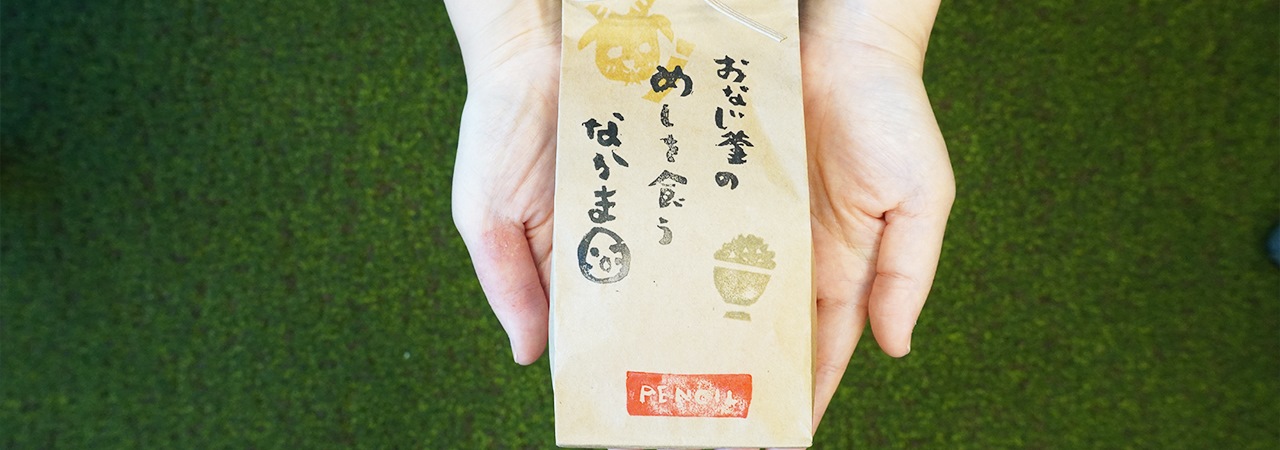 おなじ釜の
めしを食う
なかま
PENGIN